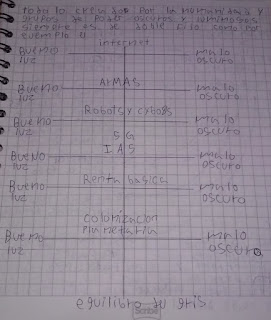 todo lo creado por la humanidad y
grupos de poder oscuros y luminosos
siempre es de doble filo como por
ejemplo el
internet
Bueno malo
luz oscuro
ARMAS
Bueno malo
luz oscuro
Robots y cybogs
Bueno malo
luz oscuro
5G
IAS
Bueno malo
luz oscuro
Renta basica
Bueno malo
luz oscuro
Colonizacion
Planetaria
Bueno malo
luz oscuro
equilibro gris
Scribe